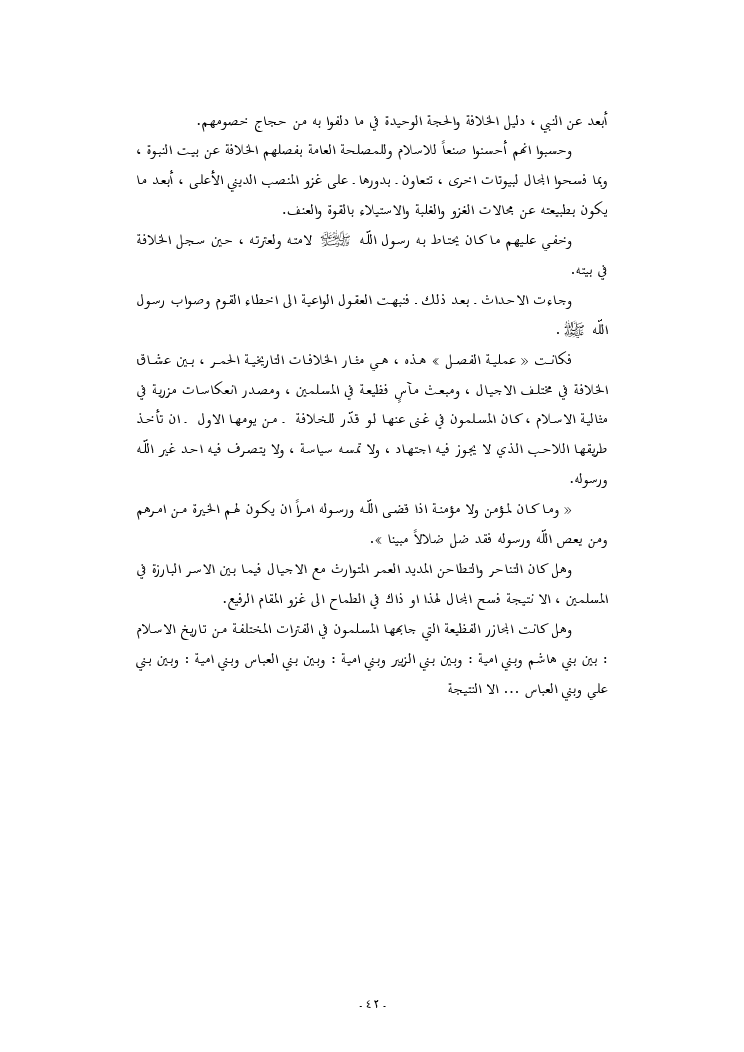 أبعد عن النبي ، دليل الخلافة والحجة الوحيدة في ما دلفوا به من حجاج خصومهم.
وحسبوا انهم أحسنوا صنعاً للاسلام وللمصلحة العامة بفصلهم الخلافة عن بيت النبوة ،
وبما فسحوا المجال لبيوتات اخرى ، تتعاون ـ بدورها ـ على غزو المنصب الديني الأعلى ، أبعد ما
يكون بطبيعته عن مجالات الغزو والغلبة والاستيلاء بالقوة والعنف.
وخفي عليهم ما كان يحتاط به رسول اللّه ﷺ لامته ولعترته ، حين سجل الخلافة
في بيته.
وجاءت الاحداث ـ بعد ذلك ـ فنبهت العقول الواعية الى اخطاء القوم وصواب رسول
اللّه ﷺ .
فكانت « عملية الفصل » هذه ، هي مثار الخلافات التاريخية الحمر ، بين عشاق
الخلافة في مختلف الاجيال ، ومبعث مآسٍ فظيعة في المسلمين ، ومصدر انعكاسات مزرية في
مثالية الاسلام ، كان المسلمون في غنى عنها لو قدّر للخلافة ـ من يومها الاول ـ ان تأخذ
طريقها اللاحب الذي لا يجوز فيه اجتهاد ، ولا تمسه سياسة ، ولا يتصرف فيه احد غير اللّه
ورسوله.
« وما كان لمؤمن ولا مؤمنة اذا قضى اللّه ورسوله امراً ان يكون لهم الخيرة من امرهم
ومن يعص اللّه ورسوله فقد ضل ضلالاً مبينا ».
وهل كان التناحر والتطاحن المديد العمر المتوارث مع الاجيال فيما بين الاسر البارزة في
المسلمين ، الا نتيجة فسح المجال لهذا او ذاك في الطماح الى غزو المقام الرفيع.
وهل كانت المجازر الفظيعة التي جابهها المسلمون في الفترات المختلفة من تاريخ الاسلام
: بين بني هاشم وبني امية : وبين بني الزبير وبني امية : وبين بني العباس وبني امية : وبين بني
علي وبني العباس ... الا النتيجة
ـ ٤٢ ـ